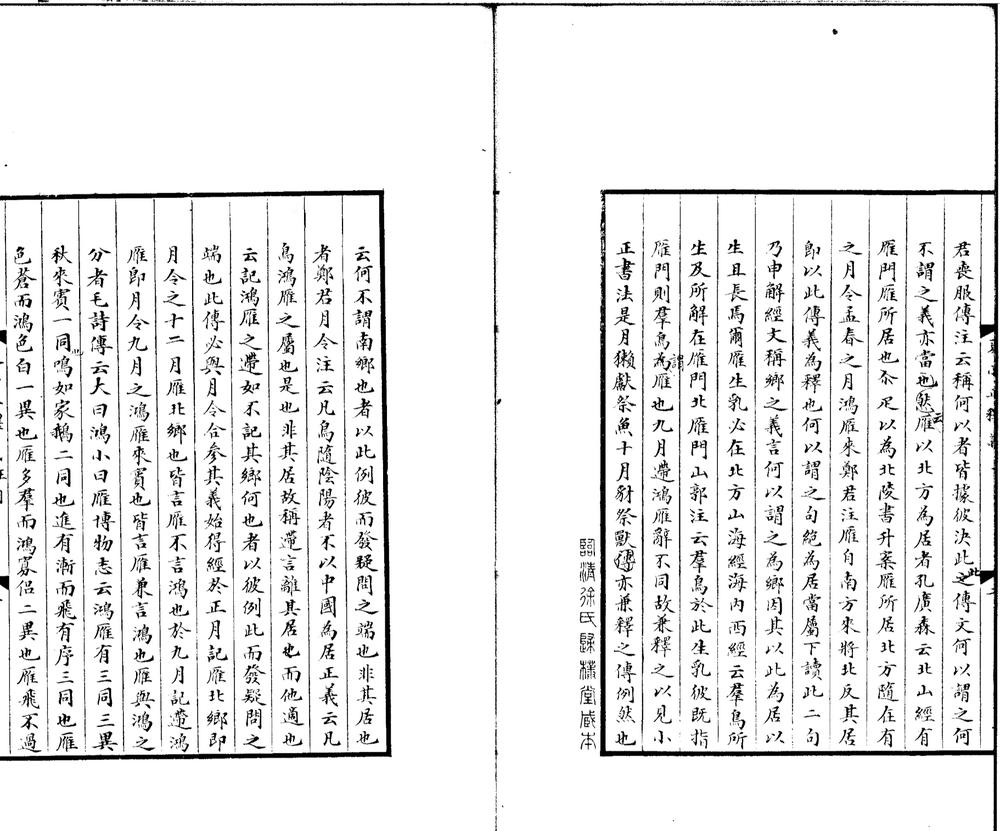 君喪服傳注云稱何以者皆據彼決此之傳文何以謂之何
此
不謂之義亦當也然雁以北方為居者孔廣森云北山經有
云
雁門雁所居也亦足以為北陵書升案雁所居北方隨在有
之月令孟春之月鴻雁來鄭君注雁自南方來將北反其居
即以此傳義為釋也何以謂之句絶為居當屬下讀此二句
乃申解經文稱鄉之義言何以謂之為鄉因其以此為居以
生且長焉爾雁生乳必在北方山海經海內西經云羣鳥所
生及所解在雁門北雁門山郭注云羣鳥於此生乳彼既指
雁門則羣鳥為雁也九月遰鴻雁辭不同故兼釋之以見小
謂
正書法是月獺獻祭魚十月豺祭獸傳亦兼釋之傳例然也
臨清徐氏歸樸堂臧本
云何不謂南鄉也者以此例彼而發疑問之端也非其居也
者鄭君月令注云凡鳥隨陰陽者不以中國為居正義云凡
鳥鴻雁之屬也是也非其居故稱遰言離其居也而他適也
云記鴻雁之遰如不記其鄉何也者以彼例此而發疑問之
端也此傳必與月令合參其義始得經於正月記雁北鄉即
月令之十二月雁北鄉也皆言雁不言鴻也於九月記遰鴻
雁即月令九月之鴻雁來賓也皆言雁兼言鴻也雁與鴻之
分者毛詩傳云大曰鴻小曰雁博物志云鴻雁有三同三異
秋來賓一同鳴如家鵝二同也進有漸而飛有序三同也雁
也
色蒼而鴻色白一異也雁多羣而鴻寡侶二異也雁飛不過